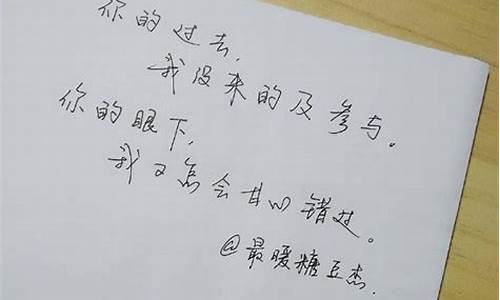 你的过去,
我没来的及参与。
你的眼下,
我又怎会甘心错过。
@最暖糖豆杰